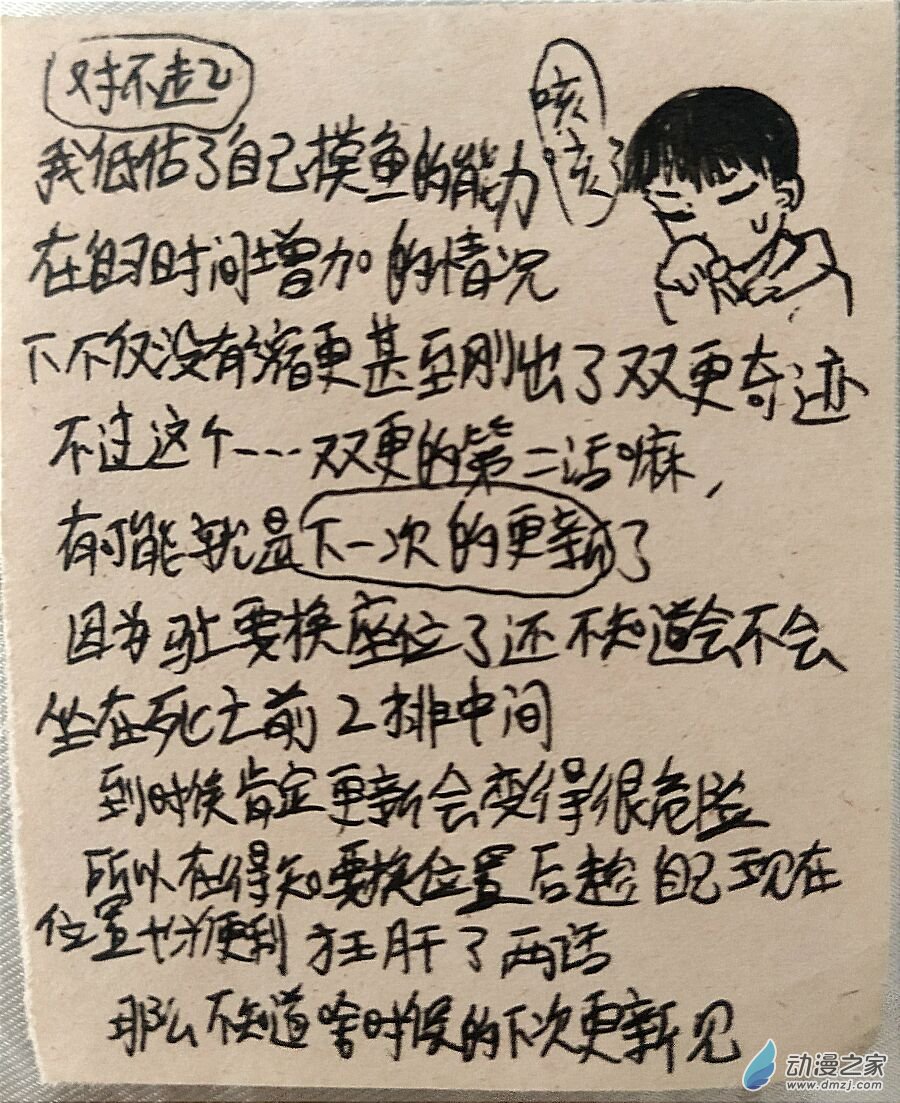 对不起
我低估了自己摸鱼的能力
咳
咳
在自习时间增加的情况
下不仅没有缩更甚至刚出了双更奇迹
不过这个----双更的第二话嘛,
有可能就是下一次的更新了
因为马上要换座位了还不知道会不会
坐在死亡前2排中间
到时候肯定更新会变得很危险
所以在得知要换位置后趁自己现在
位置也许便利狂肝了两话
那么不知道啥时候的下次更新见
动漫之家
www.dmzj.com